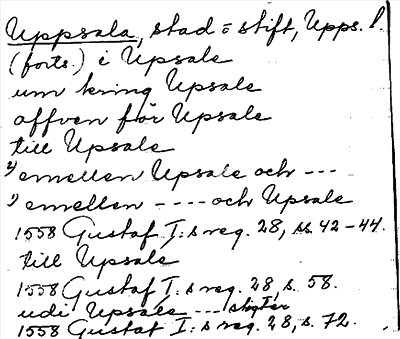 Uppsala, stad o stift, Upps. l.
(forts.) i Upsale
um kring Upsale
offven för Upsale
till Upsale
2) emellen Upsale och ---
1) emellen ---- och Upsale
1558 Gustaf I:s reg. 28, ss. 42-44.
till Upsale
1558 Gustaf I:s reg. 28, s. 58.
udi Upsale ---
1558 Gustaf I:s reg. 28, s. 72.